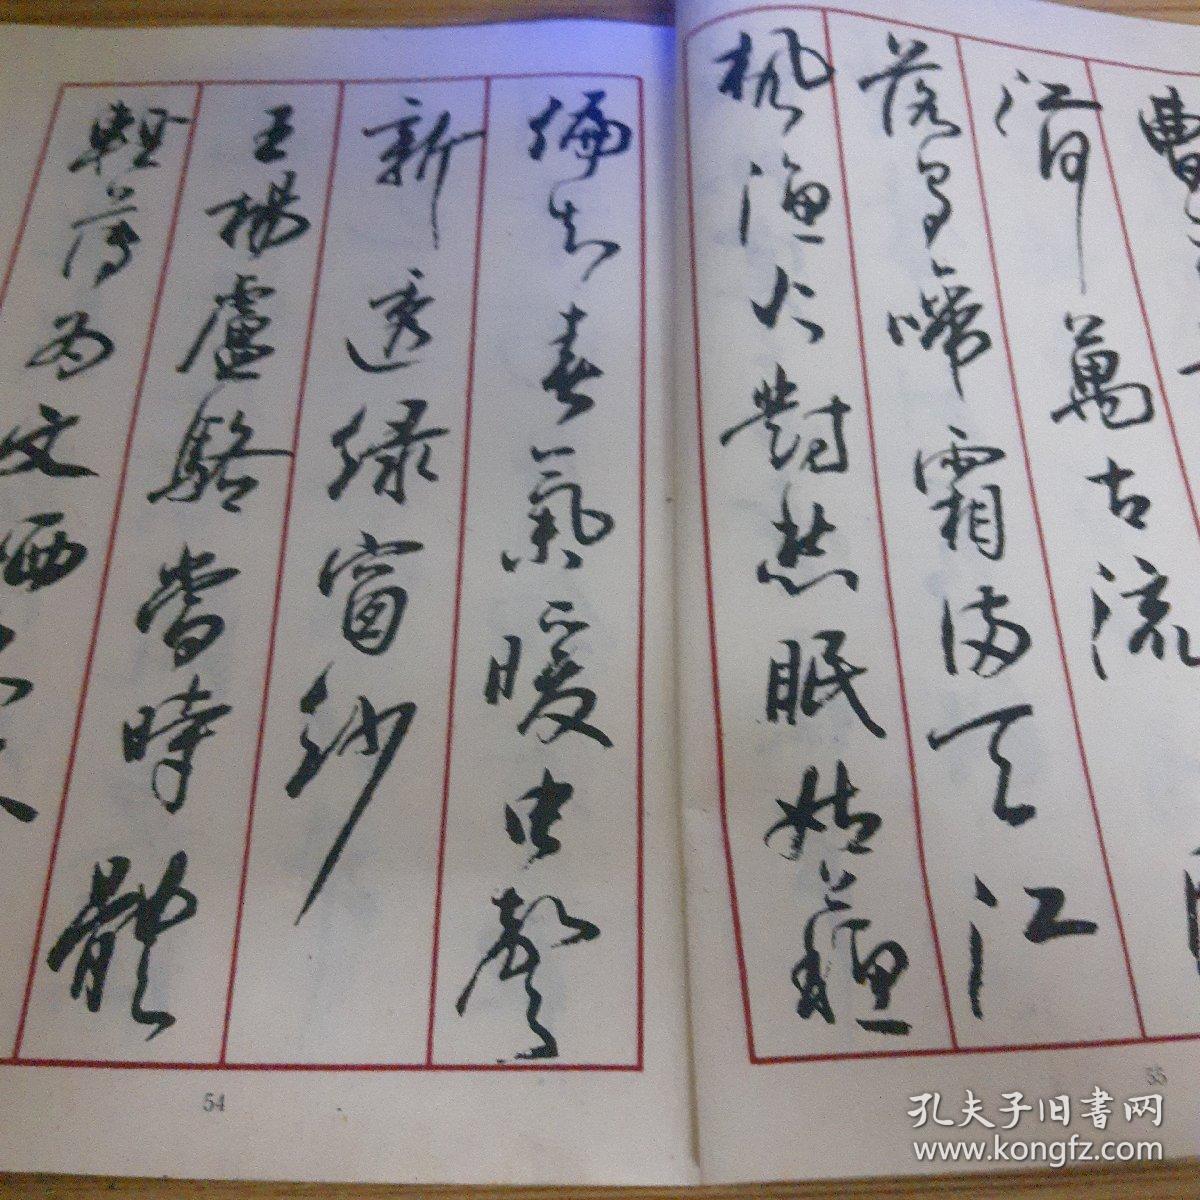 曹
江河萬古流
落烏啼霜滿天江
楓漁火對愁眠姑蘇
偏知春氣暖虫聲
新透綠窗紗
王楊盧駱當時體
輕薄為文哂未休
54
55
孔夫子旧书网
www.kongfz.com